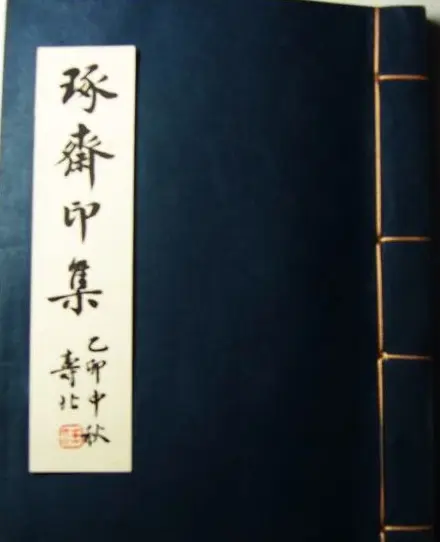 琢斋印集
乙卯中秋
寿北